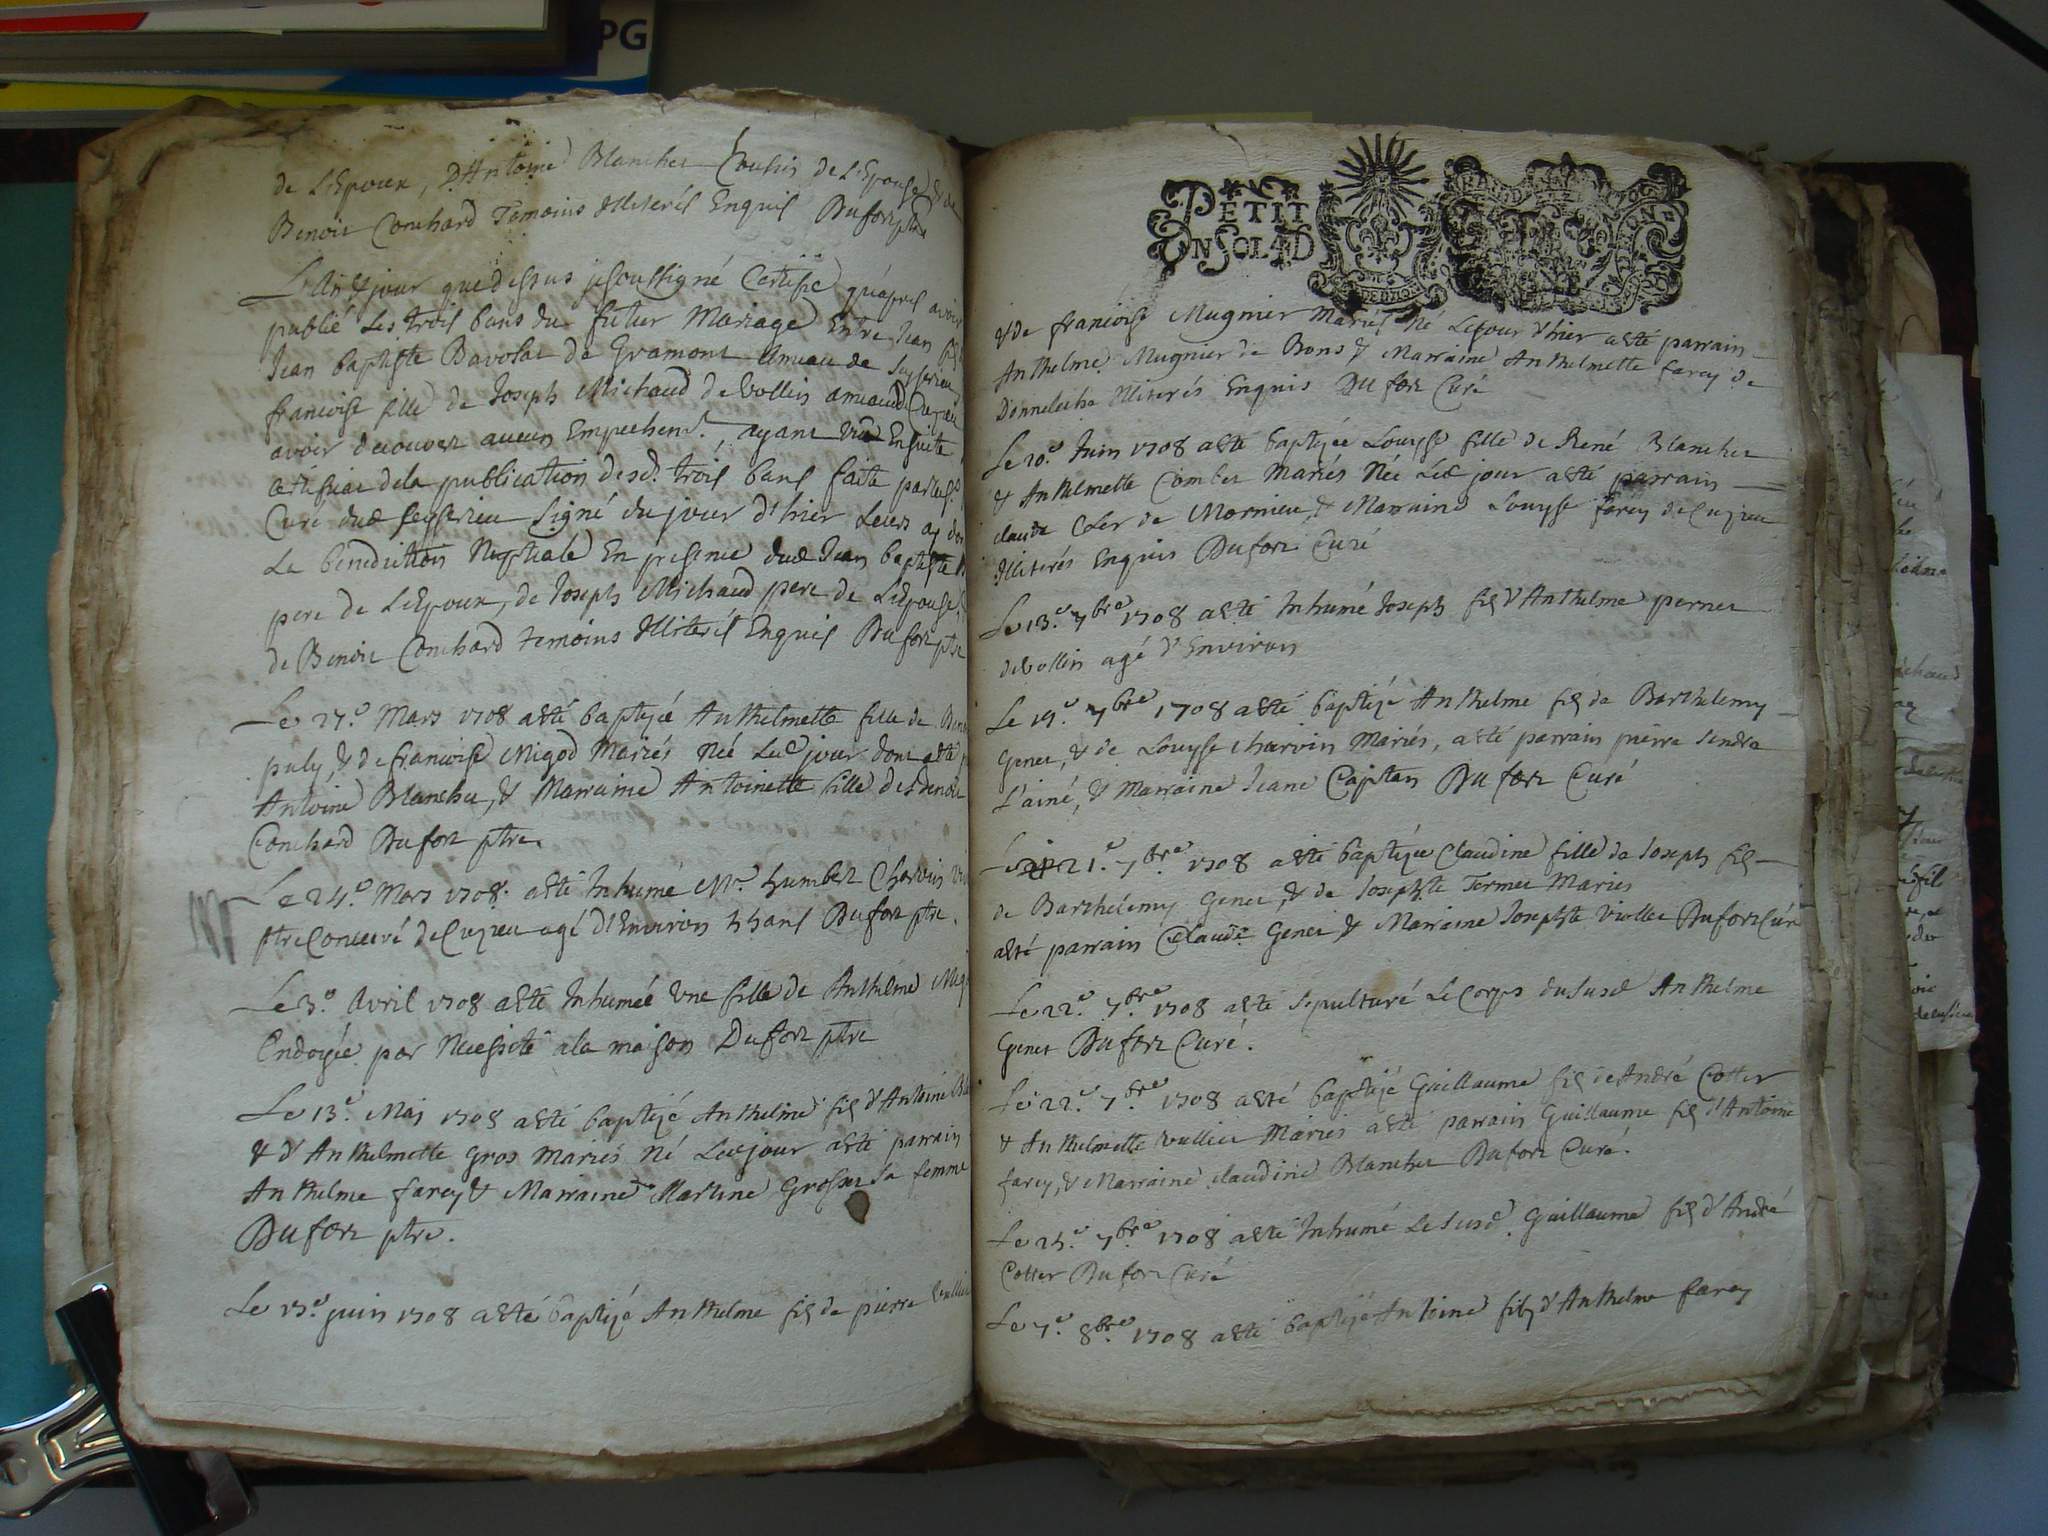 PG
de L'Epoux, D'Antoine Blanchet Cousin de L'Epouse, & de
Benoit Couchard Temoins Illiterés Enquis Dufort ptre
L'An & jour que dessus je soussigné Certifie qu'apres avoir
publié Les trois bans du futur Mariage Entre
Jean baptiste Bavolat de Gramont Ameau de Seyserieu
francoise fille de Joseph Michaud de Vollin
avoir decouver aucun Empechem.t, ayant vû Ensuite
Certificat de la publication desd. trois bans faite par
Curé dud Seyserieu Signé du jour d'hier Leurs ay
La benediction Nuptiale En presence dud Jean baptiste
pere de L'Epoux, de Joseph Michaud pere de L'Epouse,
de Benoit Couchard temoins Illiterés Enquis Dufort ptre
Le 27.e Mars 1708 a esté baptizée Anthelmette fille de
puly, & de francoise Migod Mariés Née Led jour dont a esté
Antoine Blanchet, & Marraine Antoinette fille de Benoit
Couchard Dufort ptre.
Le 24.e Mars 1708. a esté Inhumé Mr. humbert Charvin
ptre Concuré de Cuzieu agé d'Environ 55 ans Dufort ptre.
Le 5.e Avril 1708 a esté Inhumée Une fille de Anthelme
Endoyée par Necessité a la maison Dufort ptre
Le 13.e May 1708 a esté baptizé Anthelme fils d'Antoine
& d'Anthelmette Gros Mariés Né Led jour a esté parrain
Anthelme farcy & Marraine Martine Grosset sa femme
Dufort ptre.
Le 15.e juin 1708 a esté baptizé Anthelme fils de pierre Vullier
PETIT
UN SOL 4 D
& de francoise Mugnier Mariés Né Lejour d'hier a esté parrain
Anthelme Mugnier de Bons & Marraine Anthelmette farcy de
Donneloche Illiterés Enquis Dufort Curé
Le 20.e Juin 1708 a esté baptizée Louyse fille de René Blanchet
& Anthelmette Combet Mariés Née Led jour a esté parrain
claude Cler de Mornieu, & Marraine Louyse farcy de Cuzieu
Illiterés Enquis Dufort Curé
Le 13.e 7bre 1708 a esté Inhumé Joseph fils d'Anthelme pernet
de Vollin agé d'Environ
Le 19.e 7bre 1708 a esté baptizé Anthelme fils de Barthelemy
Genet, & de Louyse charvin Mariés, a esté parrain pierre Sendra
L'ainé, & Marraine Jeane Capitan Dufort Curé
Le 21.e 7bre 1708 a esté baptizée Claudine fille de Joseph fils
de Barthelemy Genet, & de Josephte Termet Mariés
a esté parrain Claude Genet & Marraine Josephte Viollet Dufort Curé
Le 22.e 7bre 1708 a esté sepulturé Le Corps du susd Anthelme
Genet Dufort Curé.
Le 22.e 7bre 1708 a esté baptizé Guillaume fils de André Cotter
& Anthelmette Vullier Mariés a esté parrain Guillaume fils d'Antoine
farcy, & Marraine claudine Blanchet Dufort Curé.
Le 25.e 7bre 1708 a esté Inhumé Le susd. Guillaume fils d'André
Cotter Dufort Curé
Le 7.e 8bre 1708 a esté baptizé Antoine fils d'Anthelme farcy